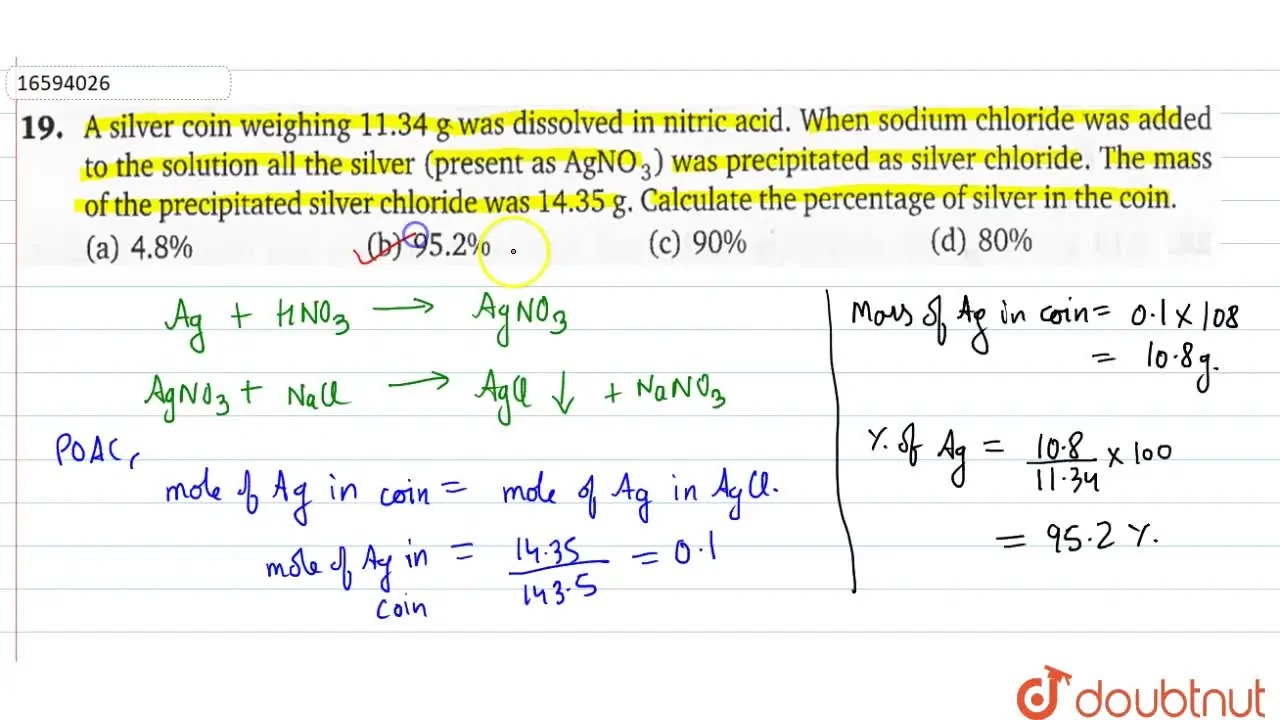 16594026
19. A silver coin weighing 11.34 g was dissolved in nitric acid. When sodium chloride was added
to the solution all the silver (present as AgNO₃) was precipitated as silver chloride. The mass
of the precipitated silver chloride was 14.35 g. Calculate the percentage of silver in the coin.
(a) 4.8% (b) 95.2% (c) 90% (d) 80%
Ag + HNO₃ → AgNO₃
AgNO₃ + NaCl → AgCl ↓ + NaNO₃
POAC,
mole of Ag in coin = mole of Ag in AgCl.
mole of Ag in coin = 14.35/143.5 = 0.1
Mass of Ag in coin = 0.1 × 108
= 10.8 g.
% of Ag = 10.8/11.34 × 100
= 95.2 %.
doubtnut